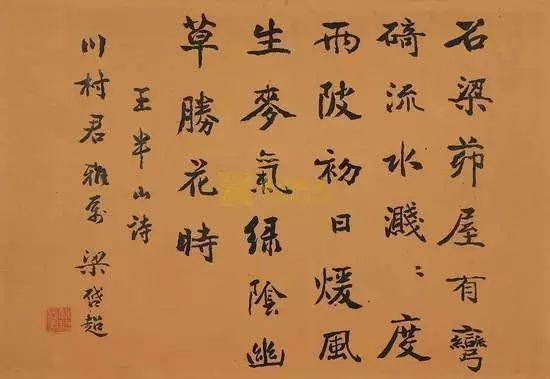 石梁茆屋有彎
碕流水濺〻度
兩陂初日煖風
生麥氣緑陰幽
草勝花時
王半山诗
川村君雅属 梁啓超